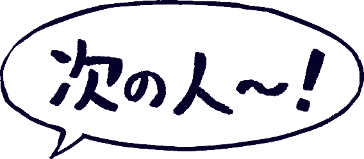 次の人～!